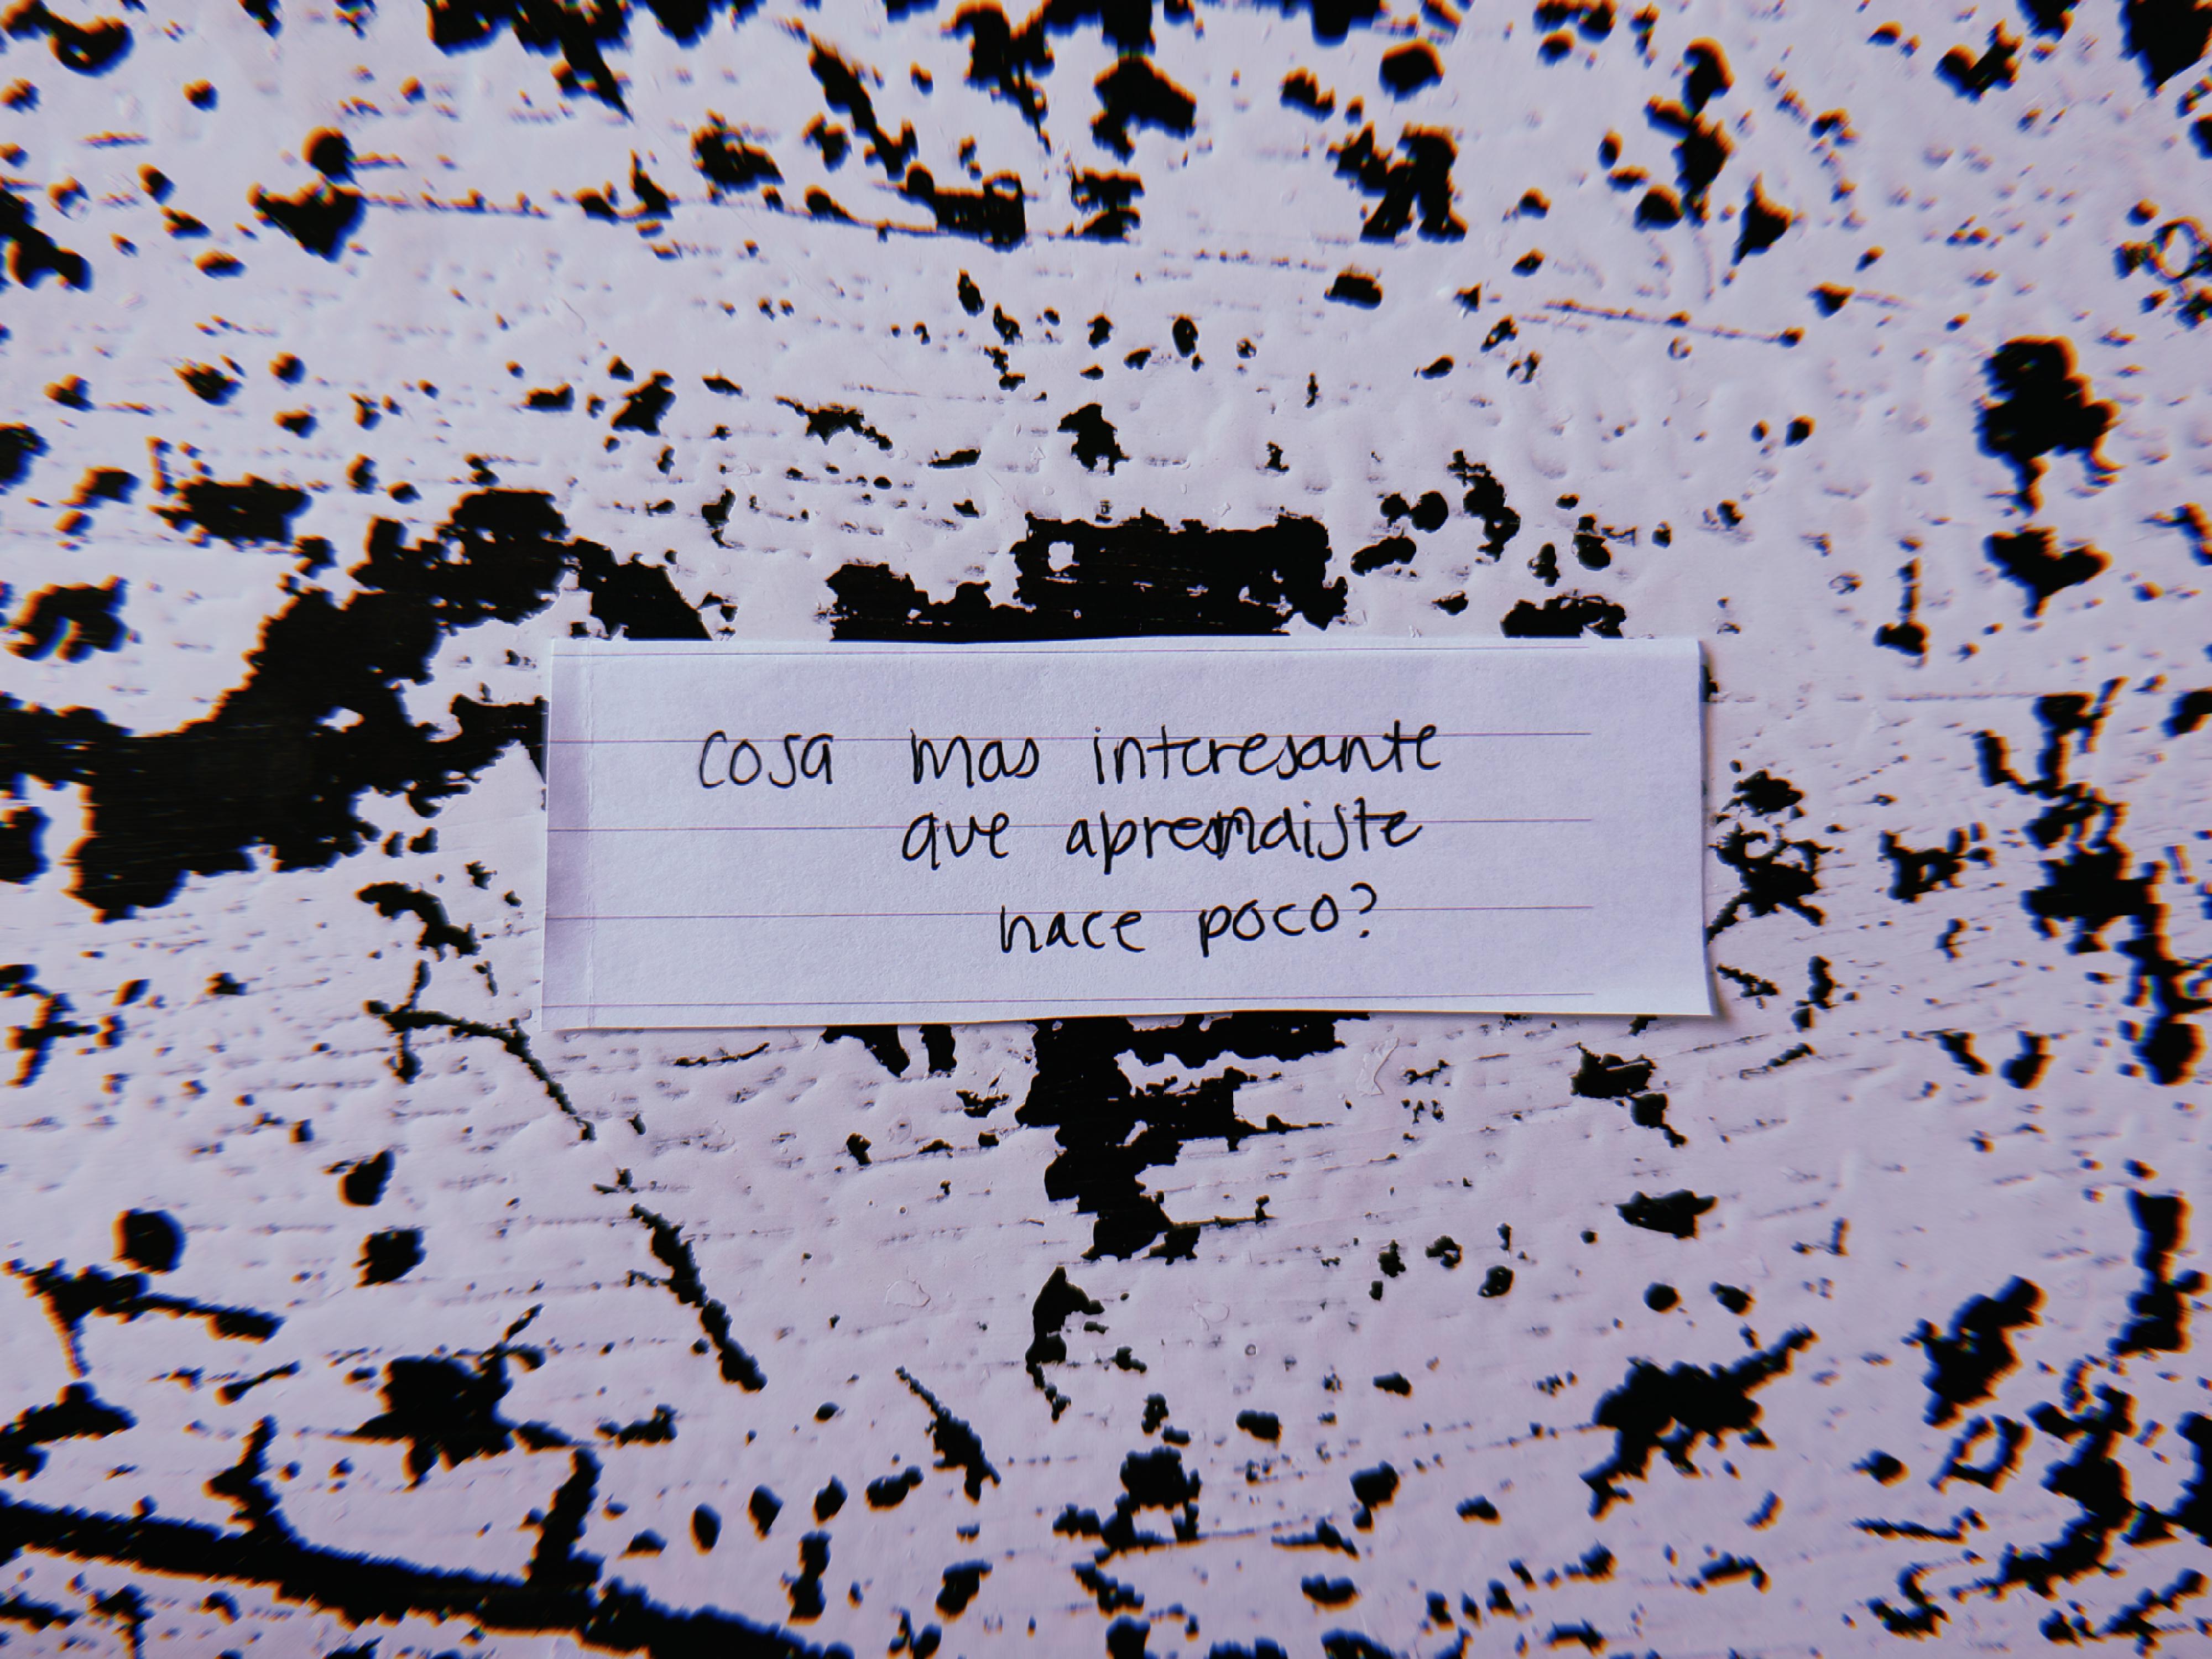 cosa mas interesante
que aprendiste
hace poco?